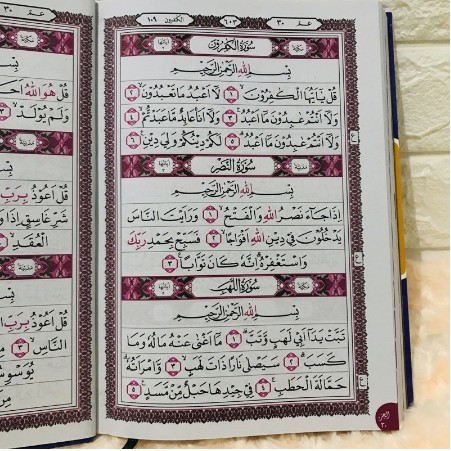 عـمّ ٣٠
٦٠٣
الكٰفرون ١٠٩
سُوْرَةُ الْكٰفِرُوْنَ
مكيّة
بِسْمِ اللّٰهِ الرَّحْمٰنِ الرَّحِيْمِ
قُلْ يٰٓاَيُّهَا الْكٰفِرُوْنَۙ ١ لَآ اَعْبُدُ مَا تَعْبُدُوْنَۙ ٢
وَلَآ اَنْتُمْ عٰبِدُوْنَ مَآ اَعْبُدُۚ ٣ وَلَآ اَنَا۠ عَابِدٌ مَّا عَبَدْتُّمْۙ ٤
وَلَآ اَنْتُمْ عٰبِدُوْنَ مَآ اَعْبُدُۗ ٥ لَكُمْ دِيْنُكُمْ وَلِيَ دِيْنِ
سُوْرَةُ النَّصْرِ
مدنيّة
بِسْمِ اللّٰهِ الرَّحْمٰنِ الرَّحِيْمِ
اِذَا جَاۤءَ نَصْرُ اللّٰهِ وَالْفَتْحُۙ ١ وَرَاَيْتَ النَّاسَ
يَدْخُلُوْنَ فِيْ دِيْنِ اللّٰهِ اَفْوَاجًاۙ ٢ فَسَبِّحْ بِحَمْدِ رَبِّكَ
وَاسْتَغْفِرْهُۗ اِنَّهٗ كَانَ تَوَّابًا ٣
سُوْرَةُ اللَّهَبِ
مكيّة
بِسْمِ اللّٰهِ الرَّحْمٰنِ الرَّحِيْمِ
تَبَّتْ يَدَآ اَبِيْ لَهَبٍ وَّتَبَّۗ ١ مَآ اَغْنٰى عَنْهُ مَالُهٗ وَمَا
كَسَبَۗ ٢ سَيَصْلٰى نَارًا ذَاتَ لَهَبٍۙ ٣ وَّامْرَاَتُهٗۗ
حَمَّالَةَ الْحَطَبِۚ ٤ فِيْ جِيْدِهَا حَبْلٌ مِّنْ مَّسَدٍ ٥
الجزء ٣٠
عـمّ ٣٠
مكيّة
قُلْ هُوَ اللّٰهُ
وَلَمْ يُوْلَدْۙ ٣
مكيّة
قُلْ اَعُوْذُ بِرَبِّ
شَرِّ غَاسِقٍ اِذَا
الْعُقَدِۙ
مدنيّة
قُلْ اَعُوْذُ بِرَبِّ
النَّاسِۙ ٣